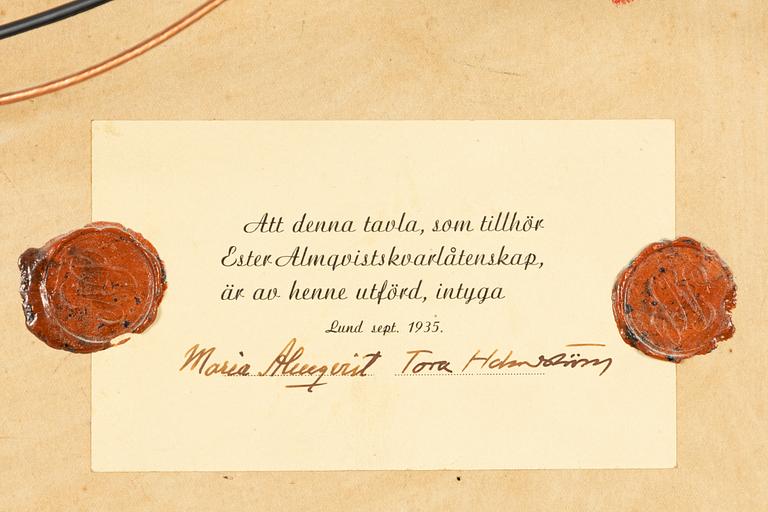 Att denna tavla, som tillhör
Ester Almqvists kvarlåtenskap,
är av henne utförd, intyga
Lund sept. 1935.
Maria Almqvist Tora Holmström